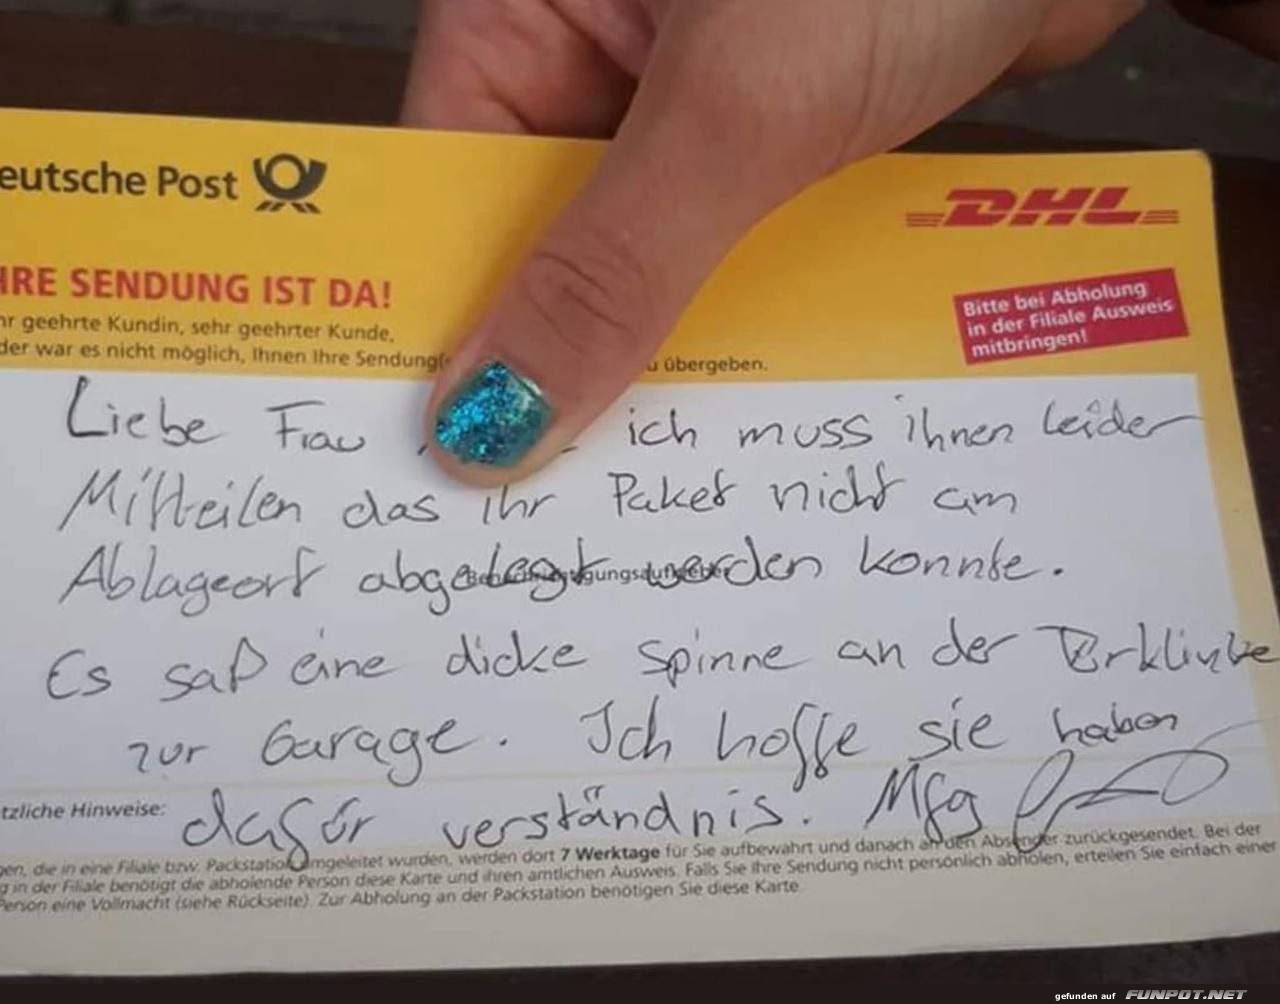 eutsche Post
DHL
HRE SENDUNG IST DA!
hr geehrte Kundin, sehr geehrter Kunde,
der war es nicht möglich, Ihnen Ihre Sendung(e
u übergeben.
Bitte bei Abholung
in der Filiale Ausweis
mitbringen!
Liebe Frau ich muss ihnen leider
Mitteilen das ihr Paket nicht am
Ablageort abgelegt werden konnte.
Es saß eine dicke Spinne an der Türklinke
zur Garage. Ich hoffe sie haben
tzliche Hinweise:
dafür verständnis. Mfg
gen, die in eine Filiale bzw. Packstation umgeleitet wurden, werden dort 7 Werktage für Sie aufbewahrt und danach an den Absender zurückgesendet. Bei der
g in der Filiale benötigt die abholende Person diese Karte und ihren amtlichen Ausweis. Falls Sie Ihre Sendung nicht persönlich abholen, erteilen Sie einfach einer
Person eine Vollmacht (siehe Rückseite). Zur Abholung an der Packstation benötigen Sie diese Karte.
gefunden auf FUNPOT.NET